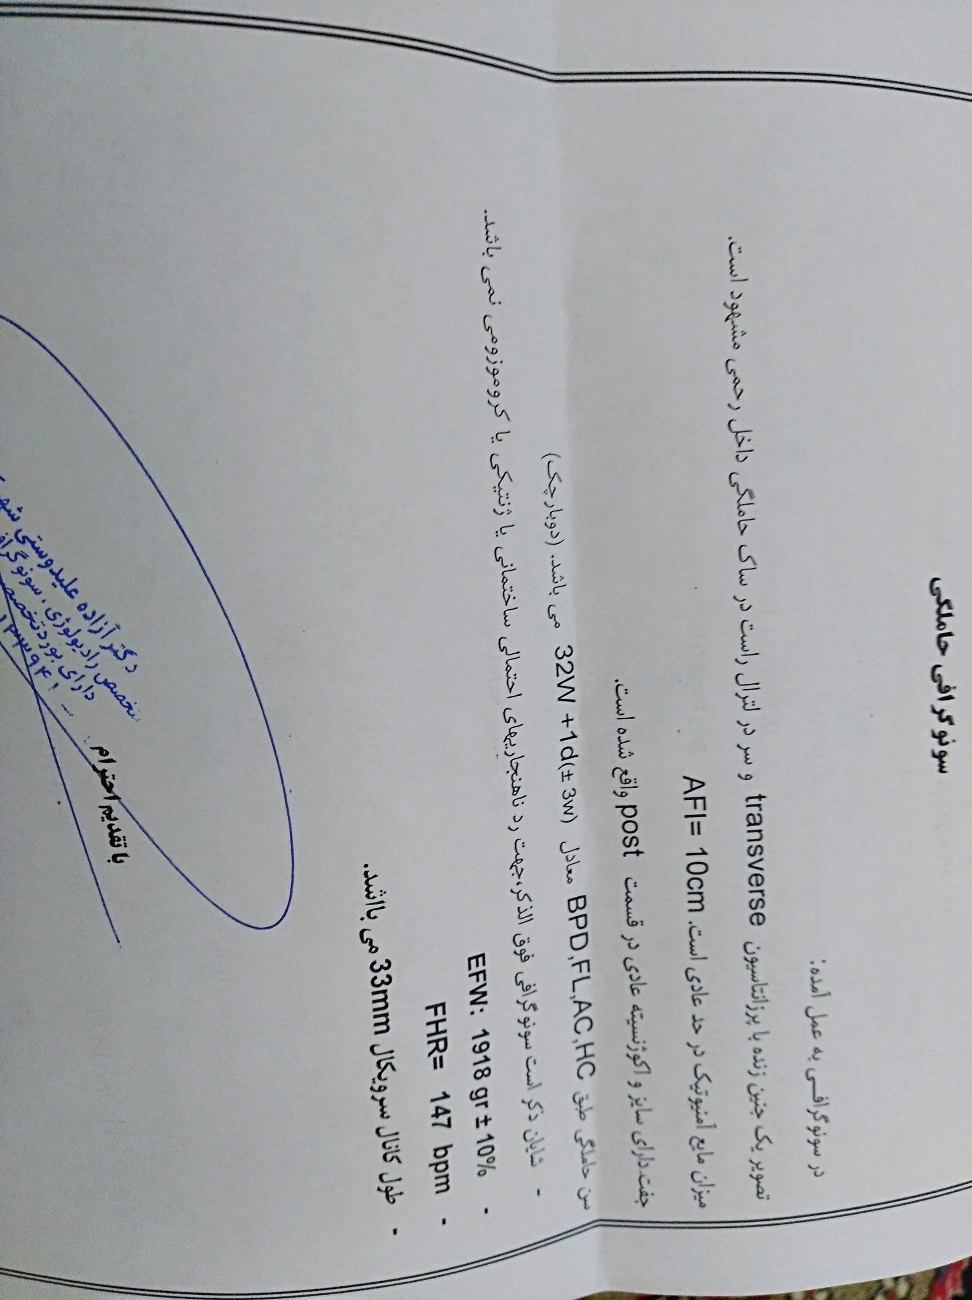 سونوگرافی حاملگی
در سونوگرافی به عمل آمده:
تصویر یک جنین زنده با پرزانتاسیون transverse و سر در لترال راست در ساک حاملگی داخل رحمی مشهود است.
میزان مایع آمنیوتیک در حد عادی است. AFI= 10cm
جفت دارای سایز و اکوژنسیته عادی در قسمت post واقع شده است.
سن حاملگی طبق BPD,FL,AC,HC معادل 32W +1d(± 3w) می باشد. (دوبار چک)
- شایان ذکر است سونوگرافی فوق الذکر،جهت رد ناهنجاریهای احتمالی ساختمانی یا ژنتیکی یا کروموزومی نمی باشد.
- EFW: 1918 gr ± 10%
- FHR= 147 bpm
- طول کانال سرویکال 33mm می بااشد.
با تقدیم احترام
دکتر آزاده علیدوستی
متخصص رادیولوژی، سونوگرافی
دارای بورد تخصصی